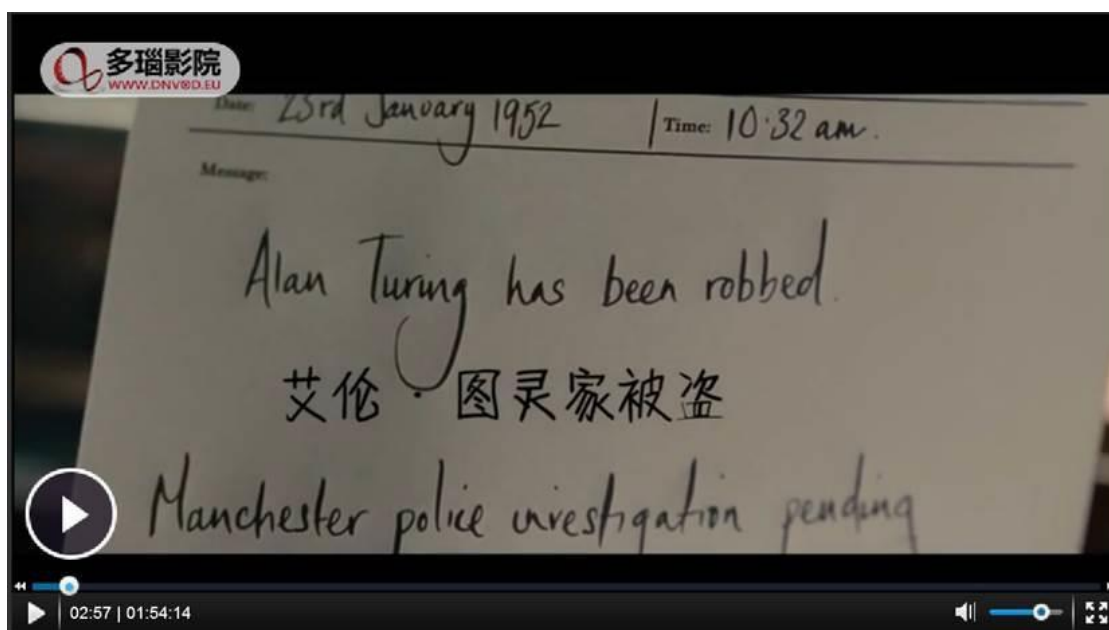 多瑙影院
WWW.DNVOD.EU
Date: 23rd January 1952 Time: 10:32 am.
Message:
Alan Turing has been robbed.
艾伦·图灵家被盗
Manchester police investigation pending
02:57 | 01:54:14